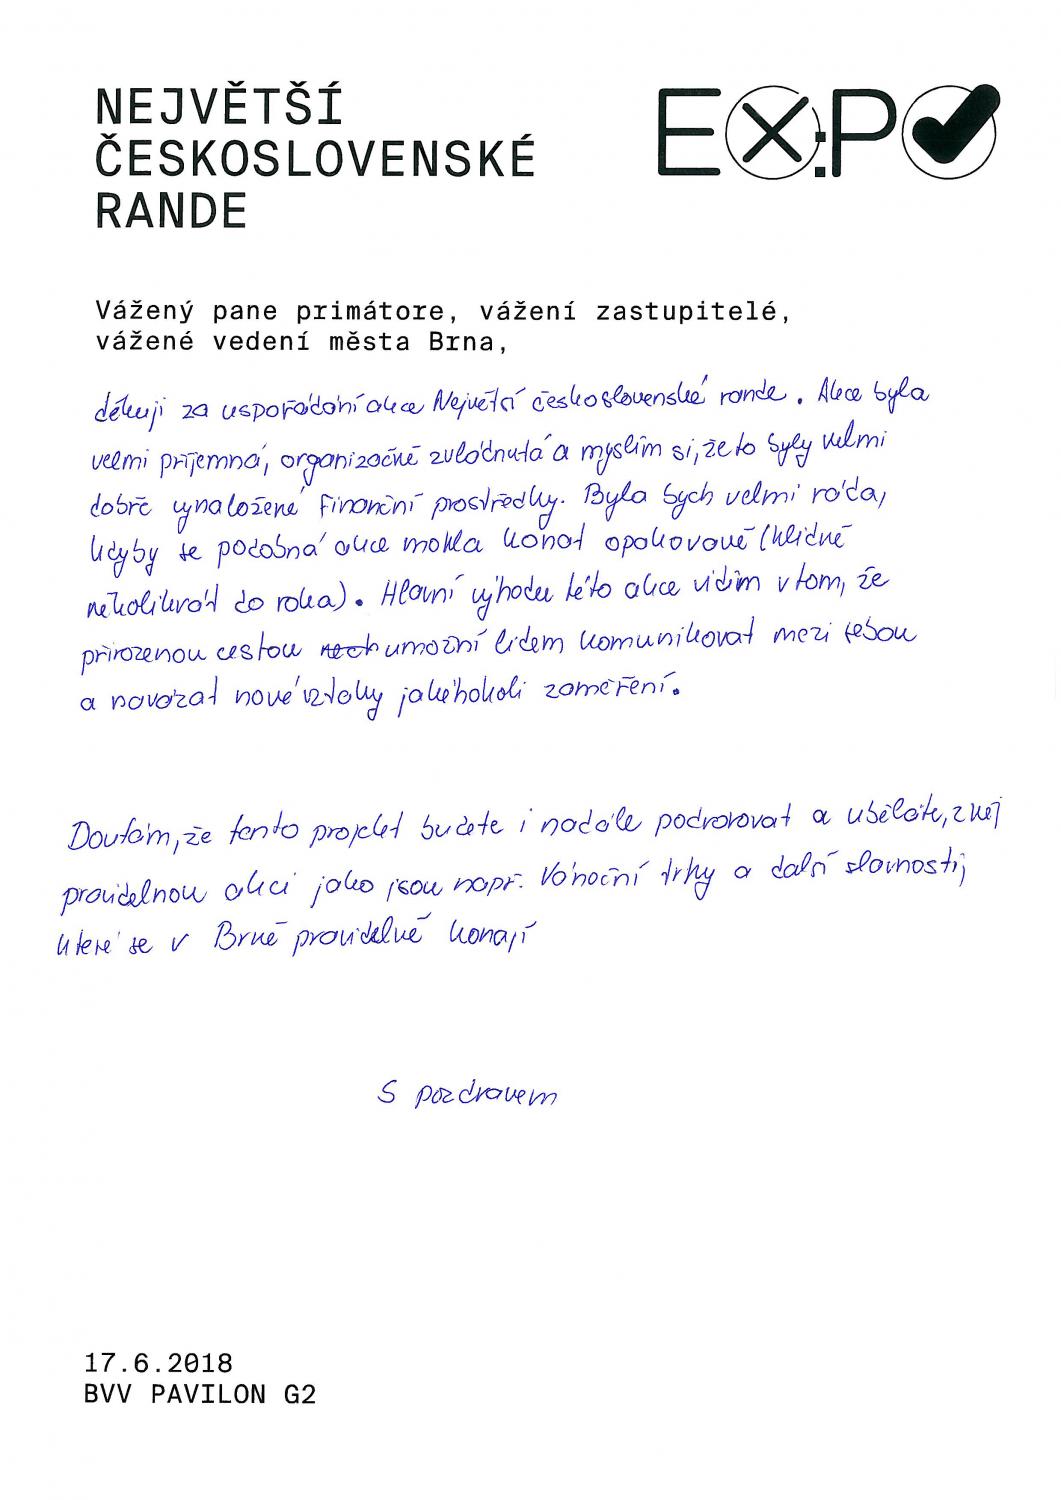 NEJVĚTŠÍ
ČESKOSLOVENSKÉ
RANDE
EX:PO
Vážený pane primátore, vážení zastupitelé,
vážené vedení města Brna,
děkuji za uspořádání akce Největší československé rande. Akce byla
velmi príjemná, organizačně zvládnutá a myslím si, že to byly velmi
dobře vynaložené finanční prostředky. Byla bych velmi ráda,
kdyby se podobná akce mohla konat opakovaně (klidně
několikrát do roka). Hlavní výhodu této akce vidím v tom, že
přirozenou cestou nech umožní lidem komunikovat mezi sebou
a navázat nové vztahy jakéhokoli zaměření.
Doufám, že tento projekt budete i nadále podporovat a uděláte, z něj
pravidelnou akci jako jsou např. Vánoční trhy a další slavnosti,
které se v Brně pravidelně konají
S pozdravem
17.6.2018
BVV PAVILON G2